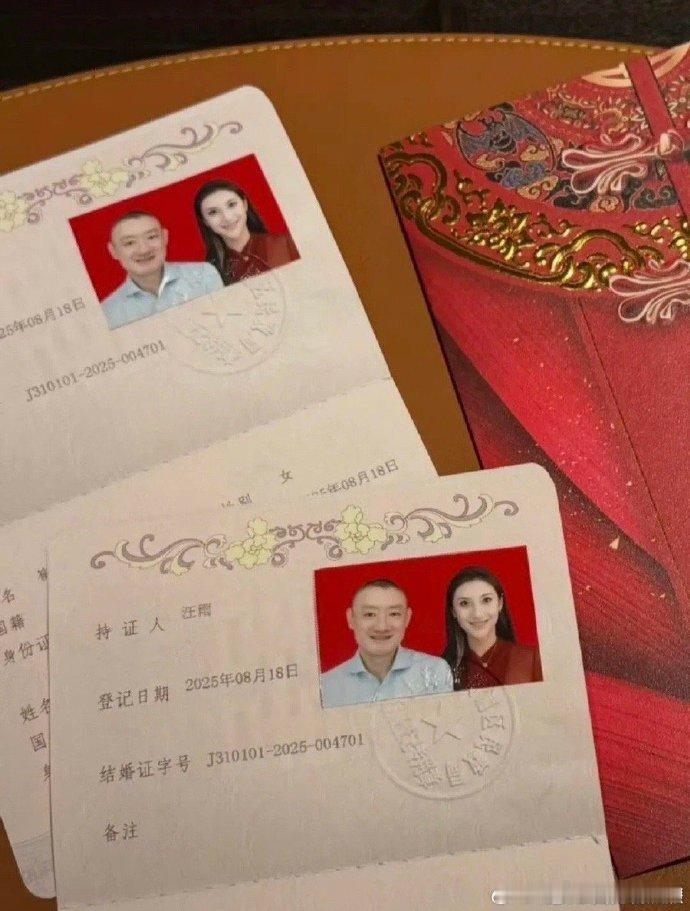 25年08月18日
J310101-2025-004701
性别 女
25年08月18日
名
国籍
身份证
姓名
国
持证人 汪雨
登记日期 2025年08月18日
结婚证字号 J310101-2025-004701
备注